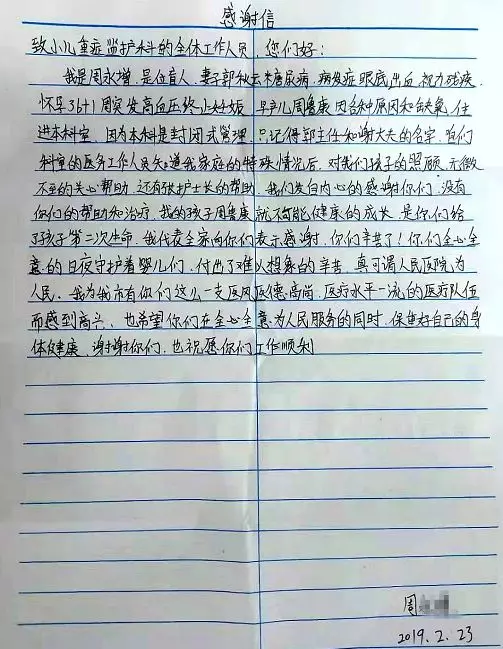 感谢信
致小儿重症监护科的全体工作人员 您们好：
我是周永增，是位盲人，妻子郭秋云糖尿病，病发症眼底出血，视力残疾，
怀孕36+1周突发高血压终止妊娠，早产儿周鲁康，因各种原因和缺氧，住
进本科室，因为本科是封闭式管理，只记得郭主任和谢大夫的名字，咱们
科室的医务工作人员知道我家庭的特殊情况后，对我们孩子的照顾，无微
不至的关心帮助，还有张护士长的帮助，我们发自内心的感谢你们，没有
你们的帮助和治疗，我的孩子周鲁康就不可能健康的成长，是你们给
了孩子第二次生命，我代表全家向你们表示感谢，你们辛苦了！你们全心全
意的日夜守护着婴儿们，付出了难以想象的辛苦，真可谓人民医院为
人民，我为我市有你们这么一支医风医德高尚，医疗水平一流的医疗队伍
而感到高兴，也希望你们在全心全意为人民服务的同时，保重好自己的身
体健康，谢谢你们，也祝愿你们工作顺利
周
2019.2.23